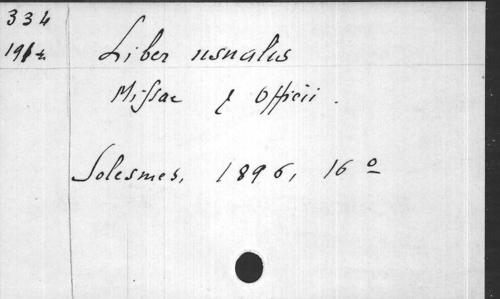 334
Liber usualis
Missae & Officii.
Solesmes, 1896, 16º